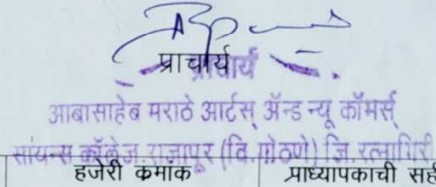 प्राचार्य
प्राचार्य
आबासाहेब मराठे आर्टस् ॲन्ड न्यू कॉमर्स्
सायन्स कॉलेज,राजापूर (वि.गोठणे) जि.रत्नागिरी
हजेरी क्रमांक प्राध्यापकाची सही